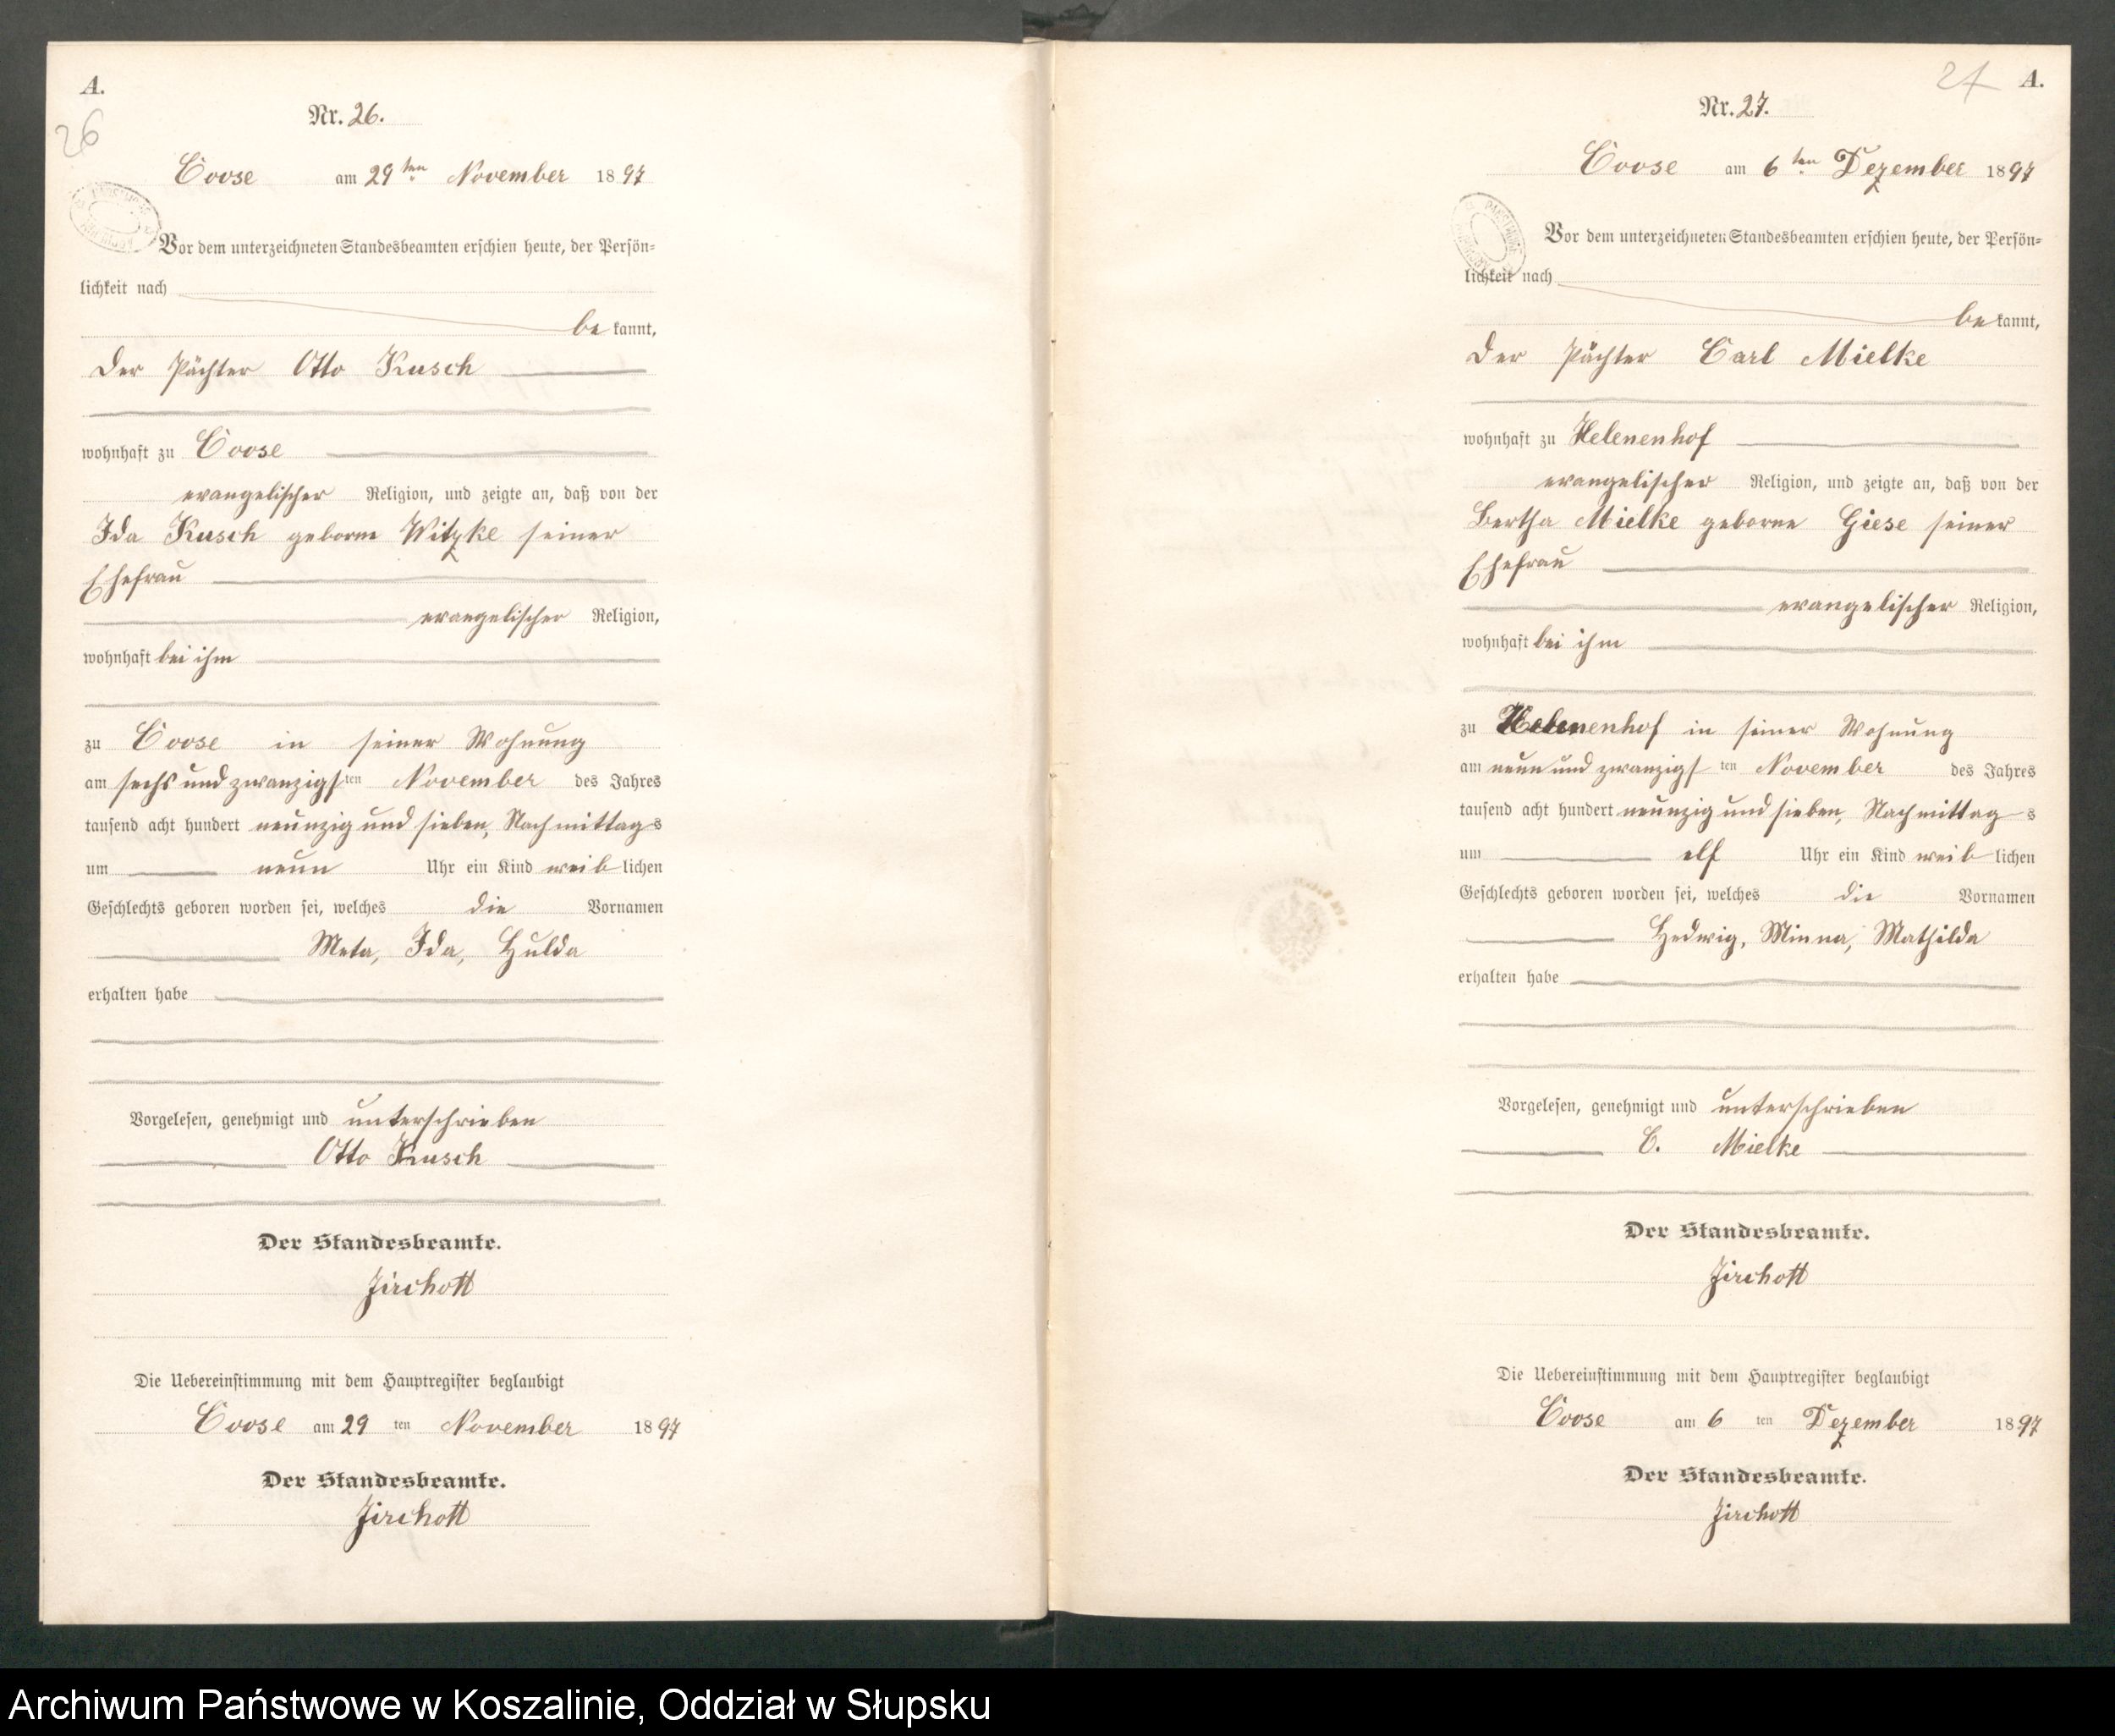 A.
26
Nr. 26.
Coose am 29ten November 1897
Vor dem unterzeichneten Standesbeamten erschien heute, der Persön=
lichkeit nach
be kannt,
der Pächter Otto Kusch
wohnhaft zu Coose
evangelischer Religion, und zeigte an, daß von der
Ida Kusch geborne Witzke seiner
Ehefrau
evangelischer Religion,
wohnhaft bei ihm
zu Coose in seiner Wohnung
am sechs und zwanzigsten November des Jahres
tausend acht hundert neunzig und sieben, Nachmittags
um neun Uhr ein Kind weiblichen
Geschlechts geboren worden sei, welches die Vornamen
Meta, Ida, Hulda
erhalten habe
Vorgelesen, genehmigt und unterschrieben
Otto Kusch
Der Standesbeamte.
Jirchott
Die Uebereinstimmung mit dem Hauptregister beglaubigt
Coose am 29 ten November 1897
Der Standesbeamte.
Jirchott
27 A.
Nr. 27.
Coose am 6ten Dezember 1897
Vor dem unterzeichneten Standesbeamten erschien heute, der Persön=
lichkeit nach
be kannt,
der Pächter Carl Mielke
wohnhaft zu Helenenhof
evangelischer Religion, und zeigte an, daß von der
Bertha Mielke geborne Giese seiner
Ehefrau
evangelischer Religion,
wohnhaft bei ihm
zu Helenenhof in seiner Wohnung
am neun und zwanzigsten November des Jahres
tausend acht hundert neunzig und sieben, Nachmittags
um elf Uhr ein Kind weiblichen
Geschlechts geboren worden sei, welches die Vornamen
Hedwig, Minna, Mathilda
erhalten habe
Vorgelesen, genehmigt und unterschrieben
C. Mielke
Der Standesbeamte.
Jirchott
Die Uebereinstimmung mit dem Hauptregister beglaubigt
Coose am 6 ten Dezember 1897
Der Standesbeamte.
Jirchott
Archiwum Państwowe w Koszalinie, Oddział w Słupsku